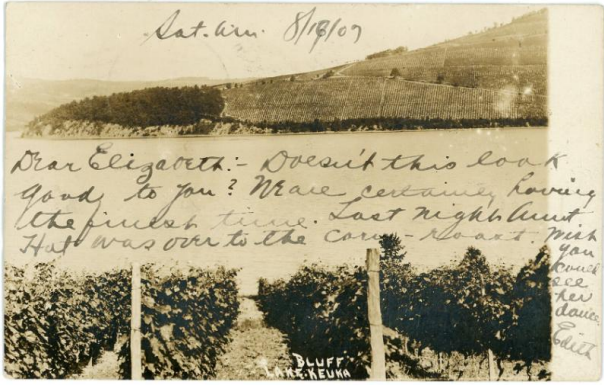 Sat. a.m. 8/18/07
Dear Elizabeth:- Doesn't this look
good to you? We are certainly having
the finest time. Last night Aunt
Hat was over to the corn-roast. Wish
you
could
see
her
dance
Edith
BLUFF
LAKE KEUKA